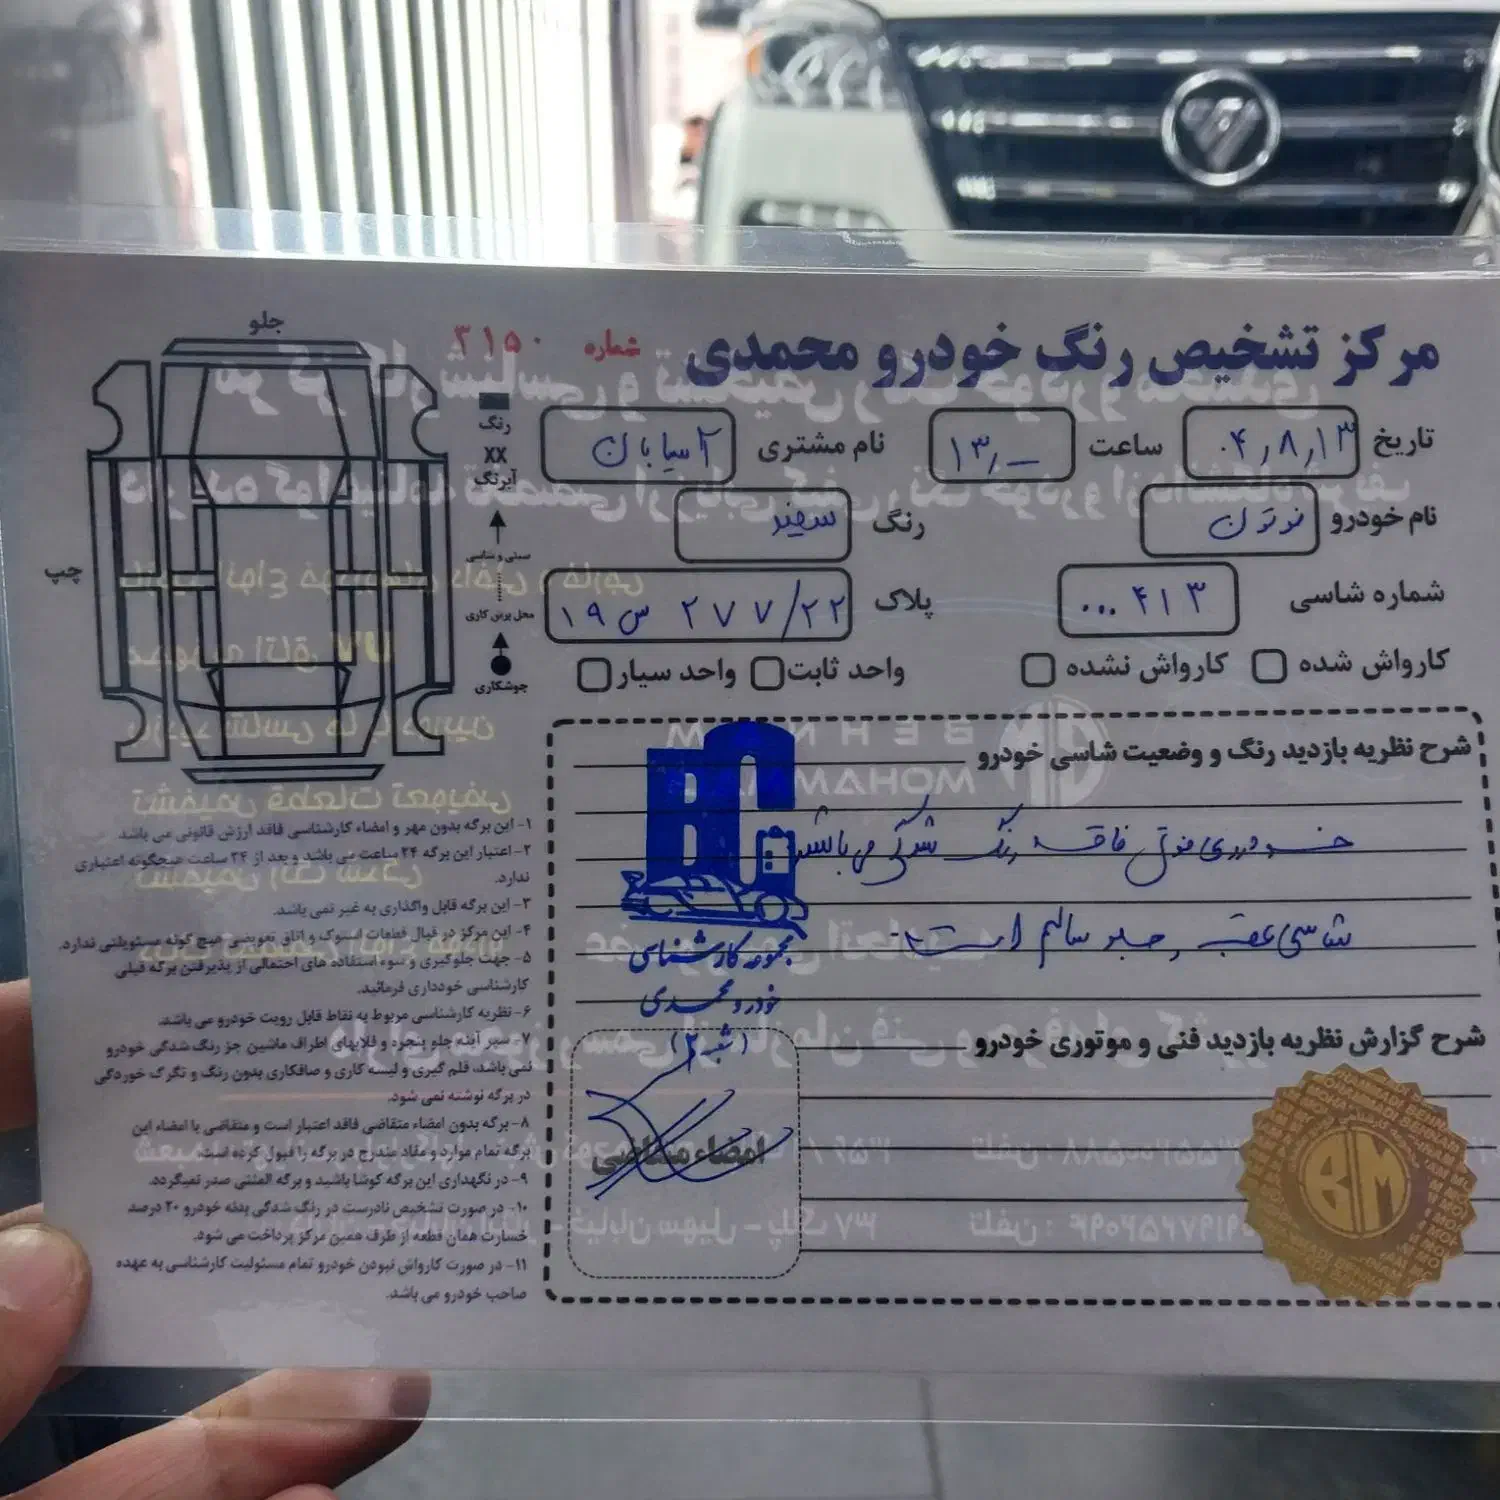 جلو
چپ
رنگ
XX
آبرنگ
سینی و شاسی
محل برش کاری
جوشکاری
مرکز تشخیص رنگ خودرو محمدی
شماره ۳۱۵۰
تاریخ ۰۴٫۸٫۱۳
ساعت ۱۳٫ــ
نام مشتری آسیابان
نام خودرو فوتون
رنگ سفید
شماره شاسی ۴۱۳...
پلاک ۱۹ س ۲۷۷/۲۲
کارواش شده
کارواش نشده
واحد ثابت
واحد سیار
شرح نظریه بازدید رنگ و وضعیت شاسی خودرو
خودروی فوق فاقد رنگ شدگی می باشد
شاسی عقب و جلو سالم است
مجموعه کارشناسی
خودرو محمدی
شرح گزارش نظریه بازدید فنی و موتوری خودرو
امضاء متقاضی
BM
۱- این برگه بدون مهر و امضاء کارشناسی فاقد ارزش قانونی می باشد
۲- اعتبار این برگه ۲۴ ساعت می باشد و بعد از ۲۴ ساعت هیچگونه اعتباری
ندارد.
۳- این برگه قابل واگذاری به غیر نمی باشد.
۴- این مرکز در قبال قطعات استوک و اتاق تعویضی هیچ گونه مسئولیتی ندارد.
۵- جهت جلوگیری و سوء استفاده های احتمالی از پذیرفتن برگه قبلی
کارشناسی خودداری فرمائید.
۶- نظریه کارشناسی مربوط به نقاط قابل رویت خودرو می باشد.
۷- سپر آینه جلو پنجره و قلابهای اطراف ماشین جز رنگ شدگی خودرو
نمی باشد، قلم گیری و لیسه کاری و صافکاری بدون رنگ و تگرگ خوردگی
در برگه نوشته نمی شود.
۸- برگه بدون امضاء متقاضی فاقد اعتبار است و متقاضی با امضاء این
برگه تمام موارد و مفاد مندرج در برگه را قبول کرده است.
۹- در نگهداری این برگه کوشا باشید و برگه المثنی صدر نمیگردد.
۱۰- در صورت تشخیص نادرست در رنگ شدگی بدنه خودرو ۲۰ درصد
خسارت همان قطعه از طرف همین مرکز پرداخت می شود.
۱۱- در صورت کارواش نبودن خودرو تمام مسئولیت کارشناسی به عهده
صاحب خودرو می باشد.